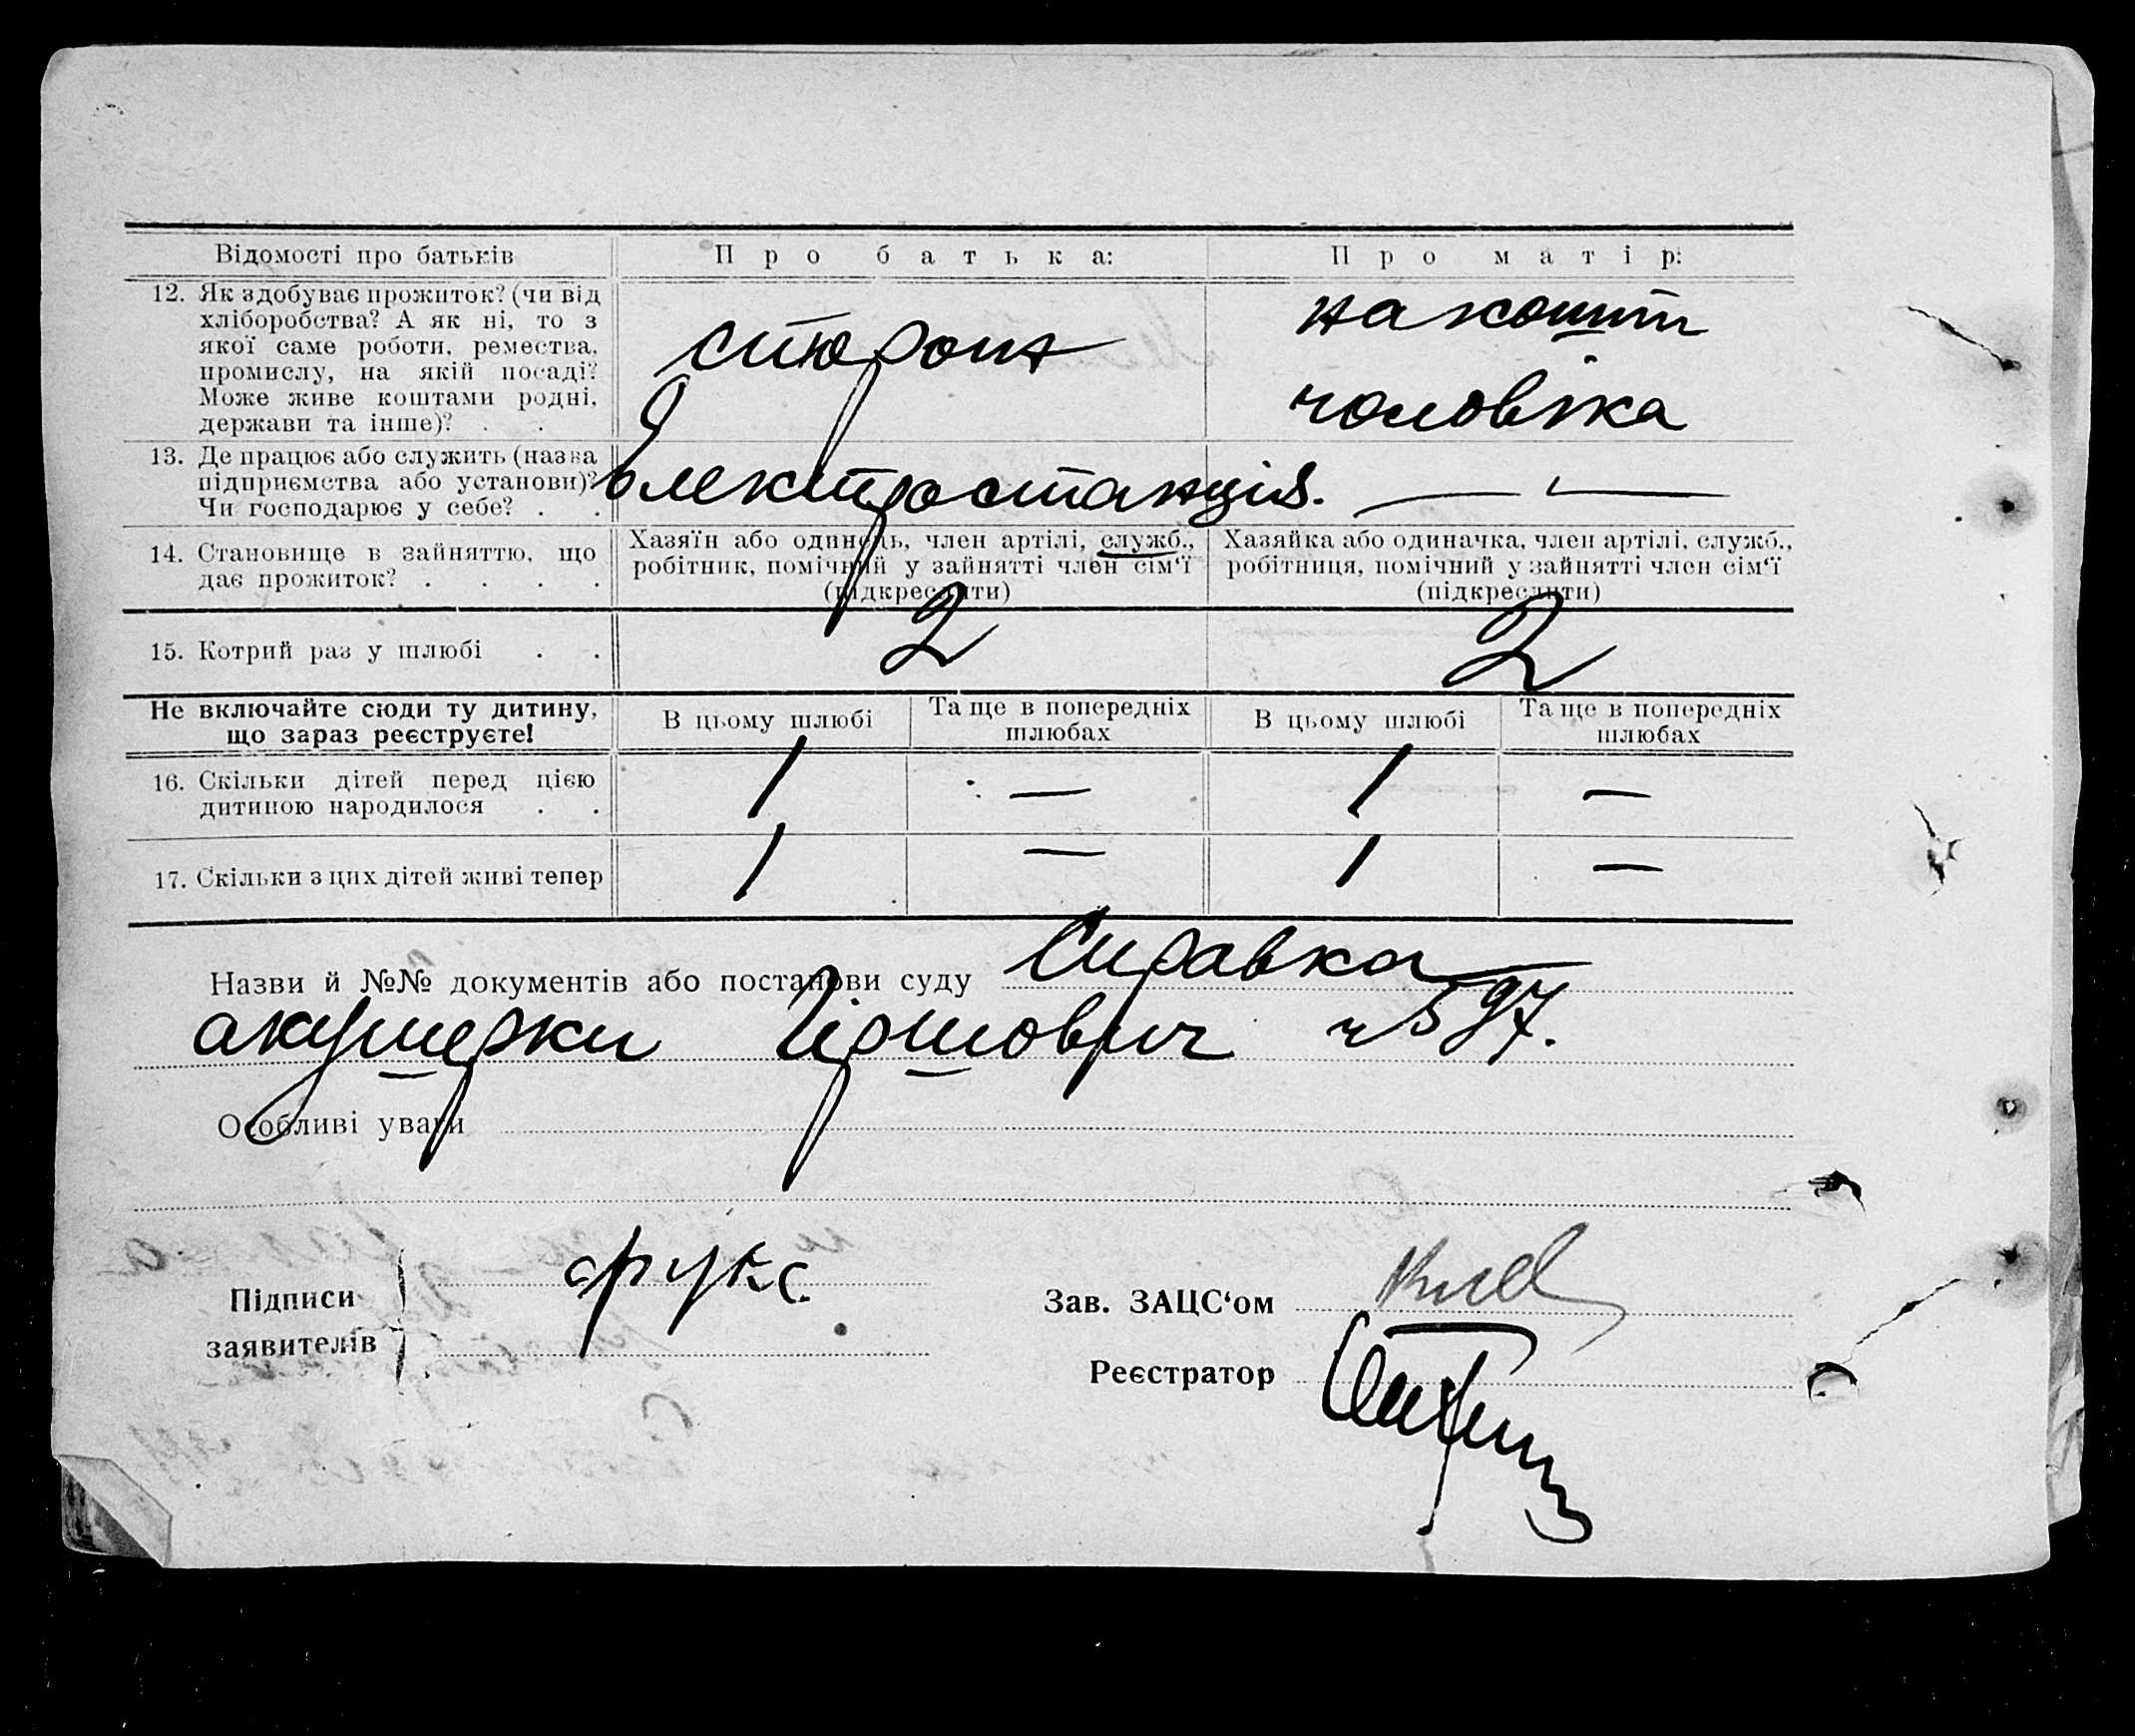 Відомості про батьків
Про батька:
Про матір:
12. Як здобуває прожиток? (чи від
хліборобства? А як ні, то з
якої саме роботи, ремества,
промислу, на якій посаді?
Може живе коштами родні,
держави та інше)? . .
сторож
на кошти
чоловіка
13. Де працює або служить (назва
підприємства або установи)?
Чи господарює у себе? . .
Электростанція. — —
14. Становище в зайняттю, що
дає прожиток? . . . .
Хазяїн або одинець, член артілі, служб.,
робітник, помічний у зайнятті член сім'ї
(підкреслити)
Хазяйка або одиначка, член артілі, служб.,
робітниця, помічний у зайнятті член сім'ї
(підкреслити)
15. Котрий раз у шлюбі . .
2
2
Не включайте сюди ту дитину,
що зараз реєструєте!
В цьому шлюбі
Та ще в попередніх
шлюбах
В цьому шлюбі
Та ще в попередніх
шлюбах
16. Скільки дітей перед цією
дитиною народилося . .
1 — 1 —
17. Скільки з цих дітей живі тепер
1 — 1 —
Назви й №№ документів або постанови суду Справка
акушерки Гіршович №597.
Особливі уваги
Підписи
заявителів
Зав. ЗАЦС‘ом
Реєстратор